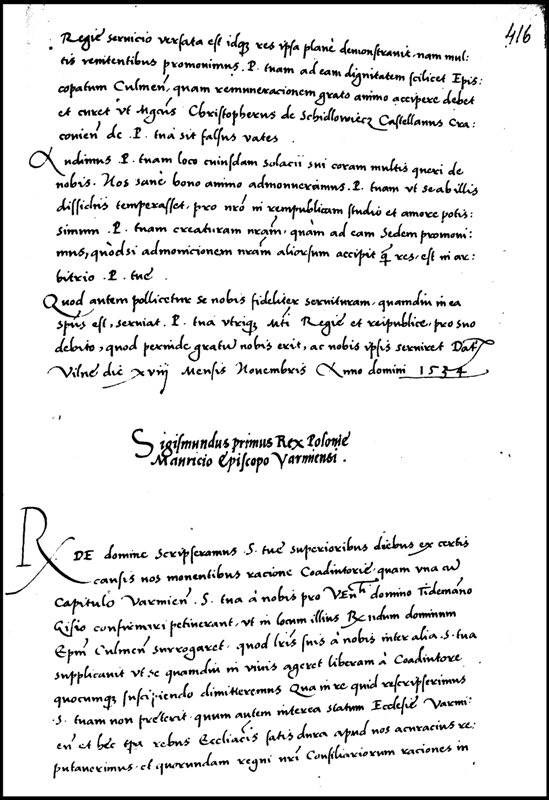 416
Regie servicio versata est idq; res ipsa plane demonstravit, nam mul:
tis renitentibus promovimus .P. tuam ad eam dignitatem scilicet Epis:
copatum Culmen̄, quam remuneracionem grato animo accipere debet
et curet vt Mgcūs Christopherus de Schidlowiecz Castellanus Cra:
covien̄ de .P. tua sit falsus vates
Audimus .P. tuam loco cuiusdam solacii sui coram multis queri de
nobis. Nos sane bono animo admonueramus .P. tuam vt se ab illis
dissidiis temperasset, pro nrō in rempublicam studio et amore potis:
simum .P. tuam creaturam nrām, quam ad eam Sedem promovi:
mus, quodsi admonicionem nrām aliorsum accipit res, est in ar:
bitrio .P. tue .
Quod autem pollicetur se nobis fideliter servituram, quamdiu in ea
spūs est, serviat .P. tua vtriq; Mti Regie et reipublice, pro suo
debito, quod perinde gratū nobis erit, ac nobis ipsis serviret Dat
Vilne die xviij Mensis Novembris Anno domini 1534
Sigismundus primus Rex Polonie
Mauricio Episcopo Varmiensi .
RDE domine Scripseramus .S. tue superioribus diebus ex certis
causis nos moventibus racione Coadiutorie, quam vna cū
Capitulo Varmien̄ .S. tua à nobis pro domino Tidemāno
Gisio confirmari petiverant, vt in locum illius Rndum dominum
Epm̄ Culmen̄ surrogaret, quod lrīs suis à nobis inter alia .S. tua
supplicavit vt se quamdiu in vivis ageret liberam à Coadiutore
quocumq; suscipiendo dimitteremus Qua in re quid rescripserimus
.S. tuam non preterit, quum autem interea statum Ecclesie Varmi:
en̄ et hec tpa rebus Ecclīacis satis dura apud nos acuracius re:
putaverimus, et quorundam regni nrī Consiliariorum raciones in